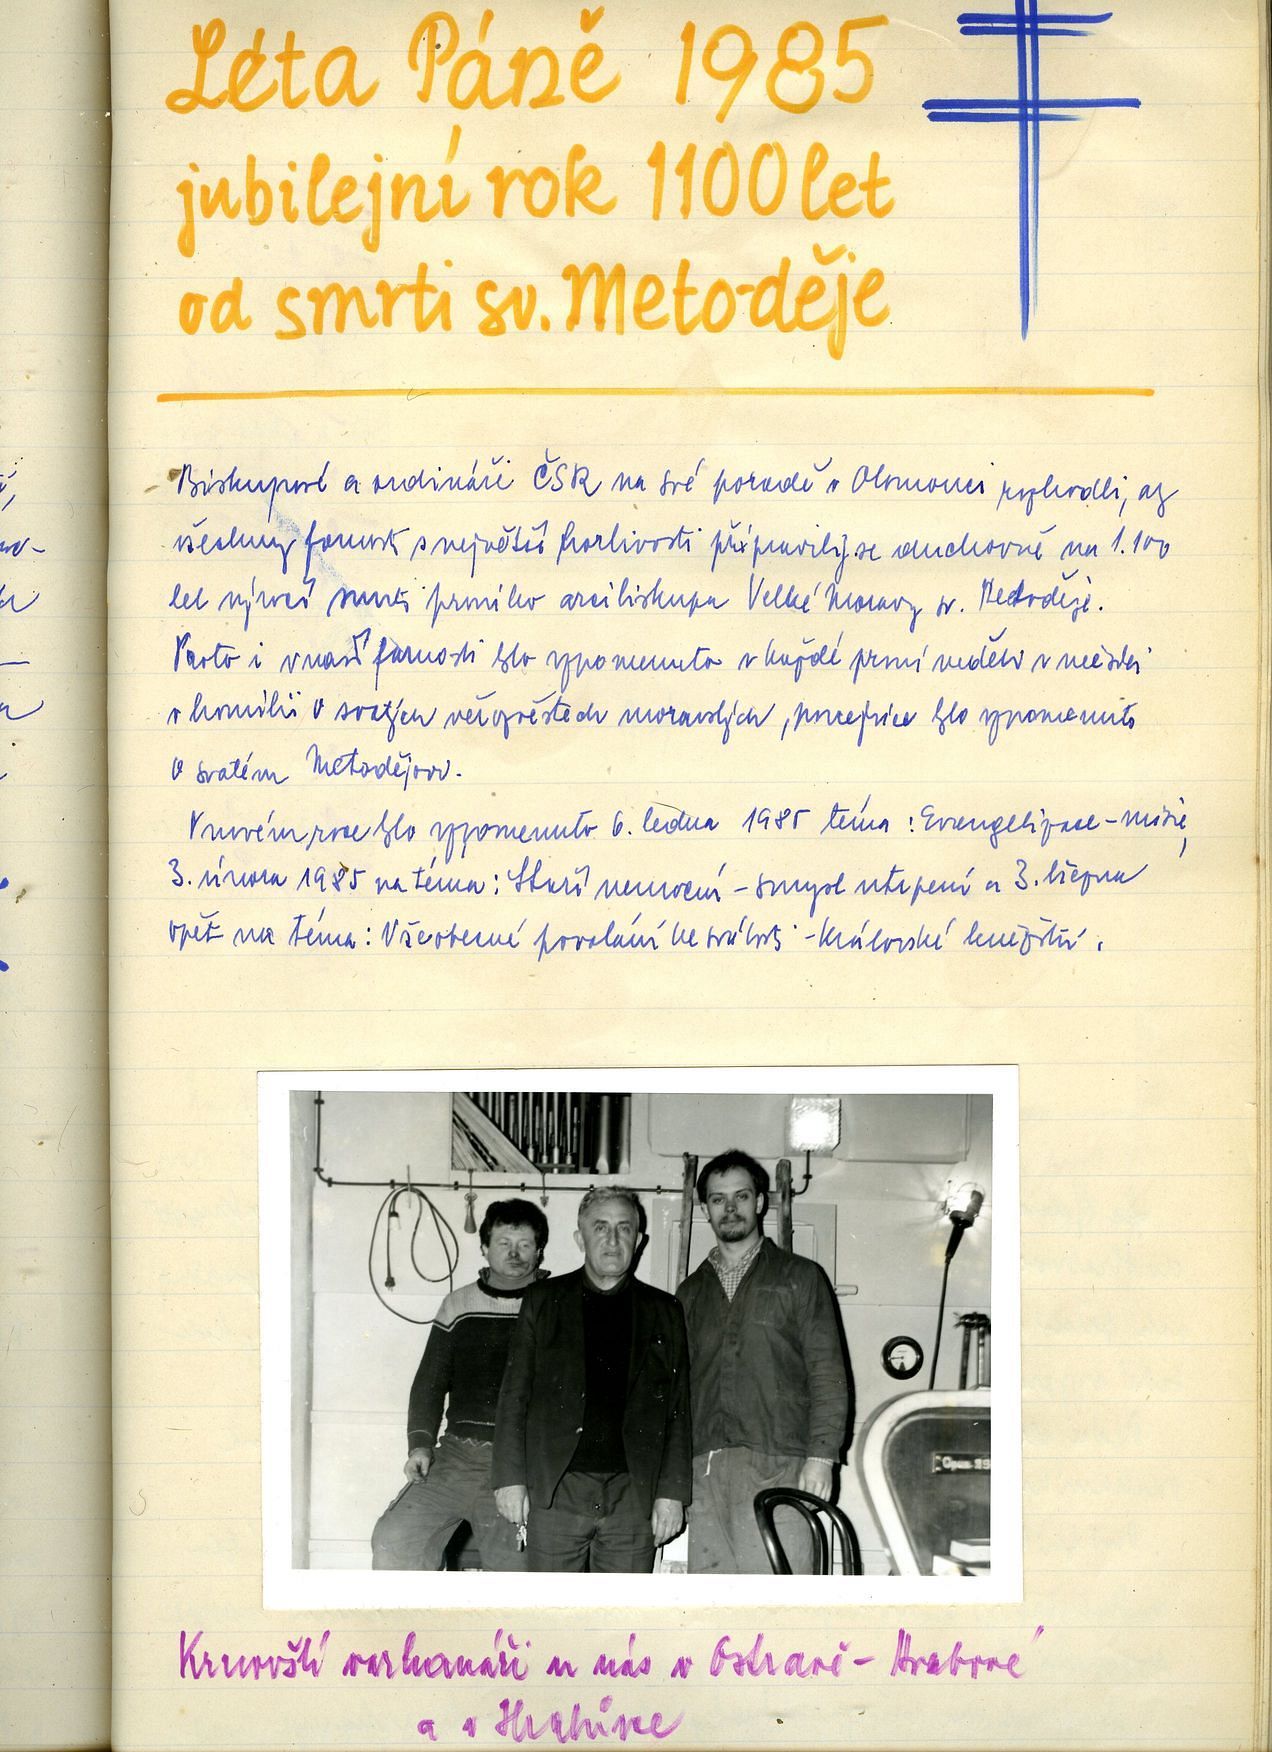 Léta Páně 1985
jubilejní rok 1100 let
od smrti sv. Metoděje
Biskupové a ordináři ČSR na své poradě v Olomouci rozhodli, aby
všechny farnosti s největší horlivostí připravily se duchovně na 1.100
let výročí smrti prvního arcibiskupa Velké Moravy sv. Metoděje.
Proto i v naší farnosti bylo vzpomenuto v každé první neděli v měsíci
v homilii o svatých věrozvěstech moravských, nejvíce bylo vzpomenuto
o svatém Metodějovi.
V novém roce bylo vzpomenuto 6. ledna 1985 téma: Evangelizace - misie,
3. února 1985 na téma: Staří nemocní - smysl utrpení a 3. března
opět na téma: Všeobecné povolání ke svatosti - Královské kněžství.
Opus 25
Krnovští varhanáři u nás v Ostravě - Hrabové
a v Hrabůvce